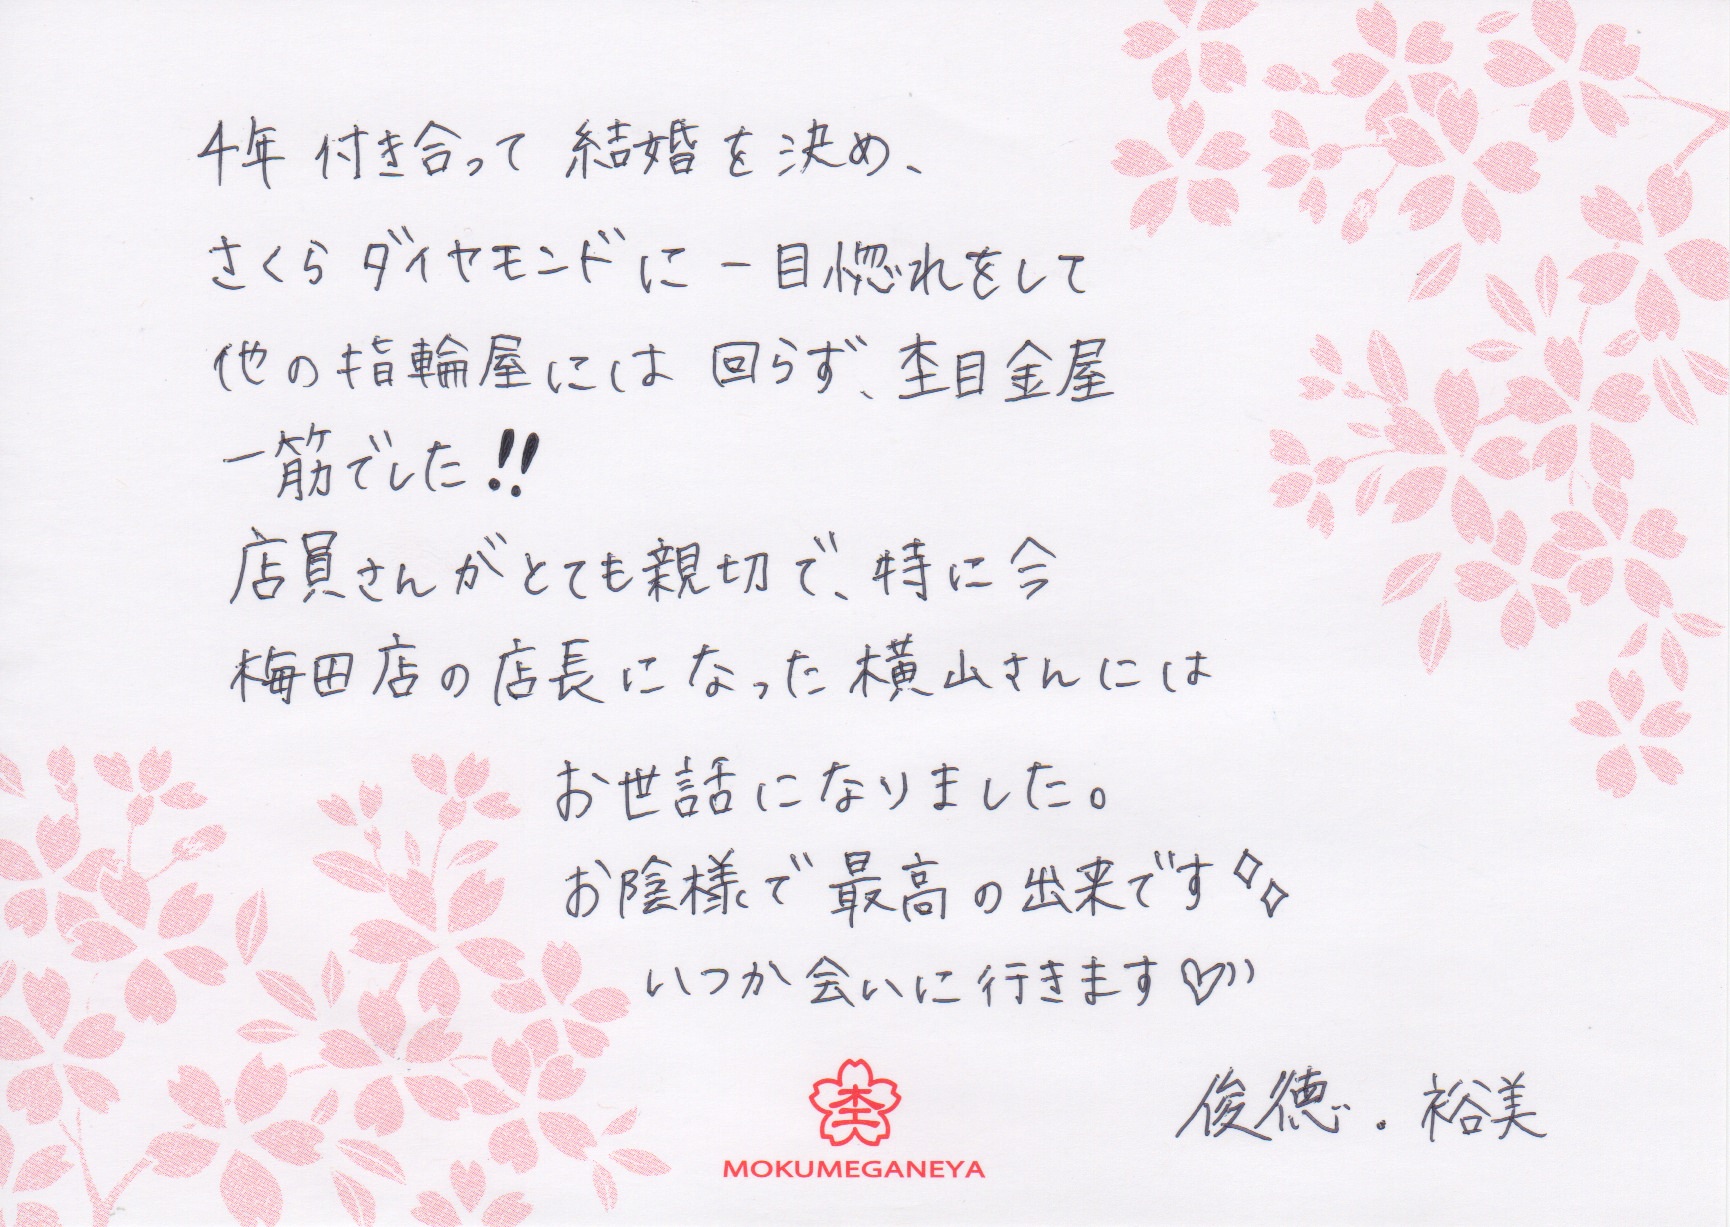 4年 付き合って 結婚を決め、
さくらダイヤモンドに一目惚れをして
他の指輪屋には 回らず、杢目金屋
一筋でした!!
店員さんがとても親切で、特に今
梅田店の店長になった横山さんには
お世話になりました。
お陰様で最高の出来です
いつか会いに行きます♡
俊徳.裕美
杢
MOKUMEGANEYA